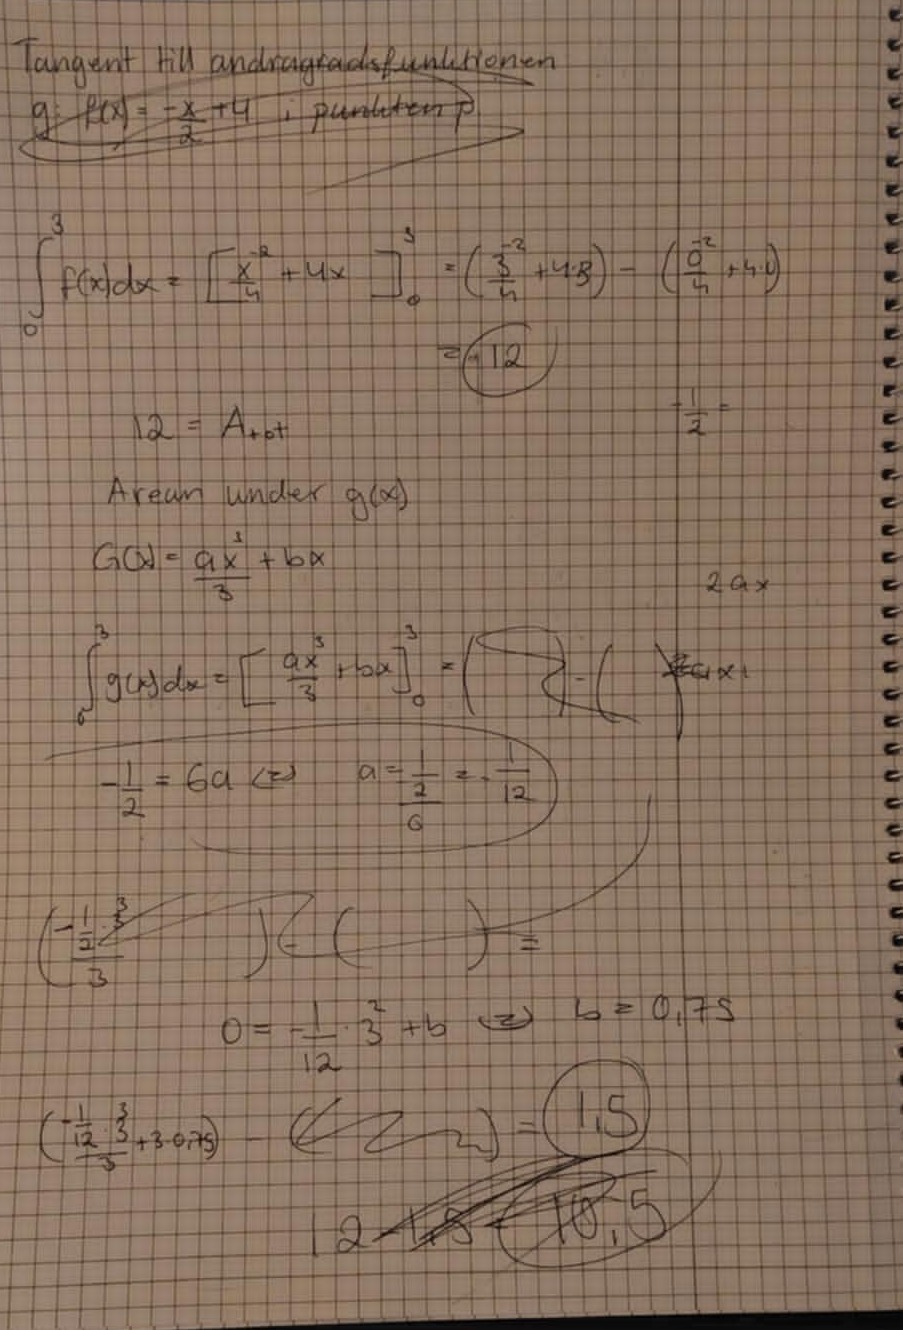 Tangent till andragradsfunktionen
g: f(x) = -x/2 + 4 i punkten p.
∫₀³ f(x)dx = [x⁻²/4 + 4x]₀³ = (3⁻²/4 + 4·3) - (0⁻²/4 + 4·0)
= 12
-1/2 =
12 = Atot
Arean under g(x)
G(x) = ax³/3 + bx
2ax
∫₀³ g(x)dx = [ax³/3 + bx]₀³ = ( ) - ( )
-1/2 = 6a (=) a = -1/2/6 = -1/12
(-1/2·3³/3 ) - ( ) =
0 = -1/12 · 3² + b (=) b = 0,75
(-1/12·3³/3 + 3·0,75) - ( ) = 1,5
12 - 1,5 = 10,5